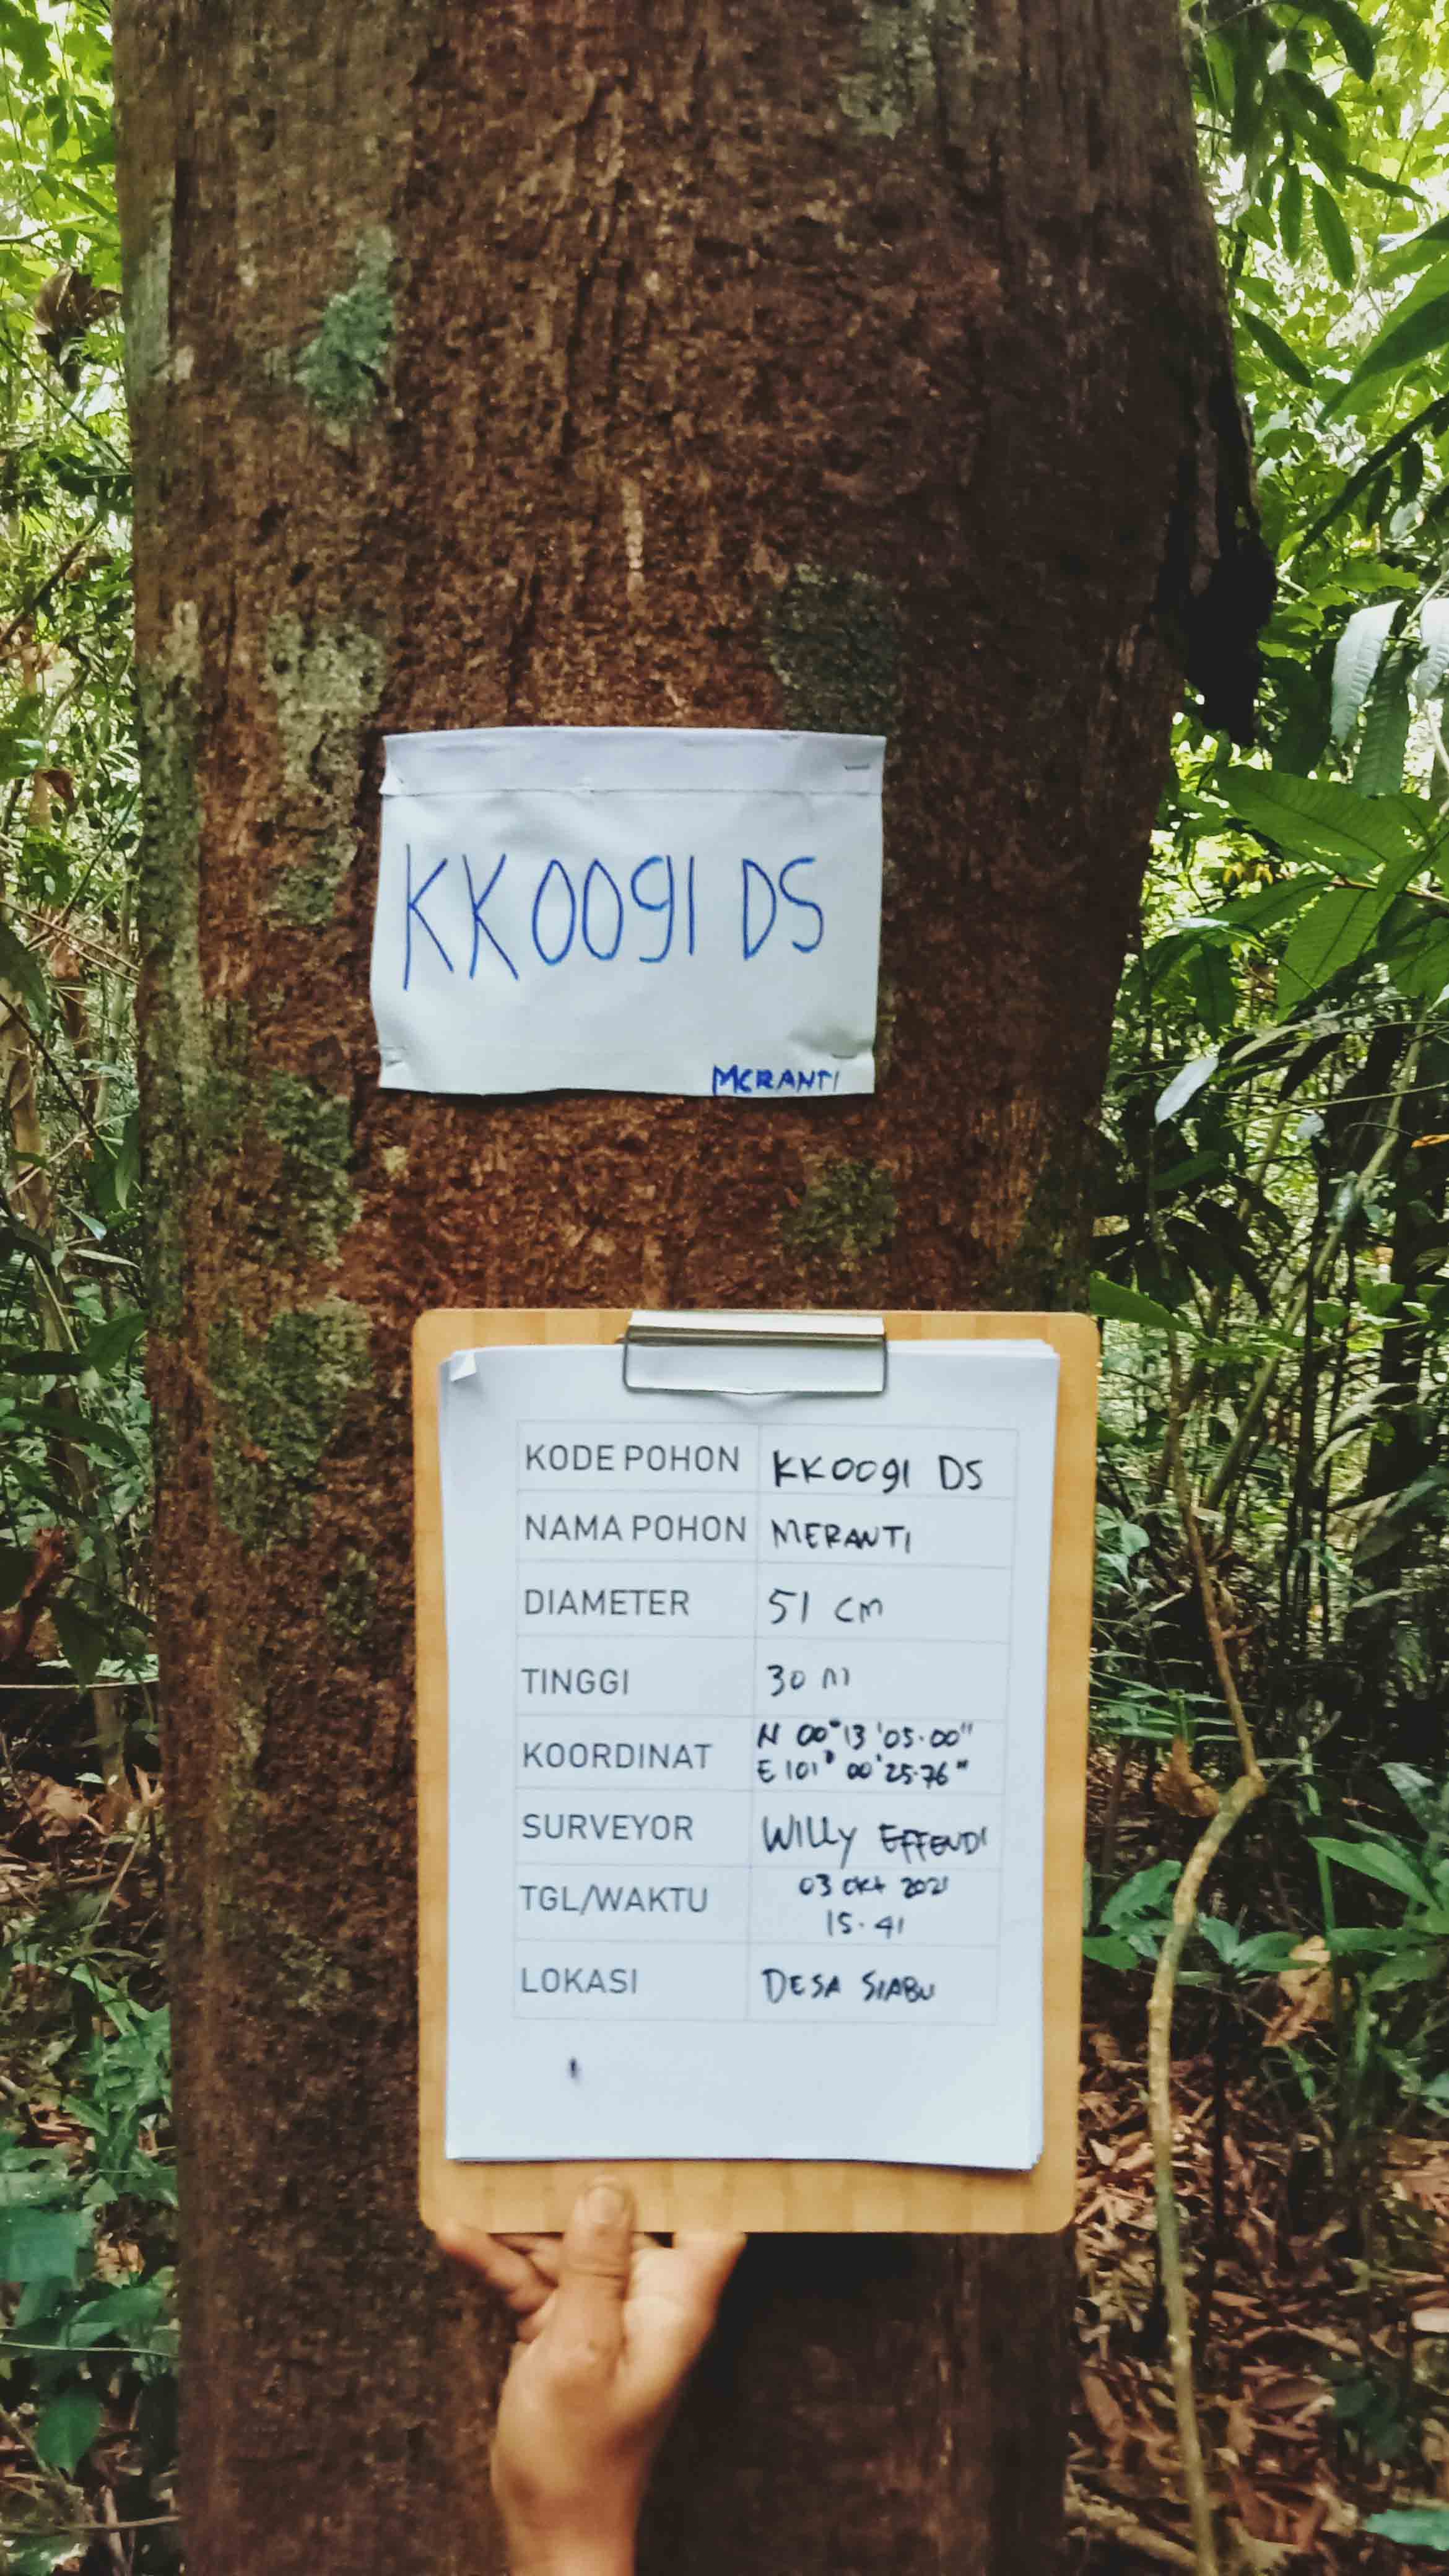 KK0091 DS
MERANTI
KODE POHON KK0091 DS
NAMA POHON MERANTI
DIAMETER 51 cm
TINGGI 30 m
KOORDINAT N 00°13'05.00"
E 101° 00'25.76"
SURVEYOR WILLY EFFENDI
TGL/WAKTU 03 okt 2021
15.41
LOKASI DESA SIABU